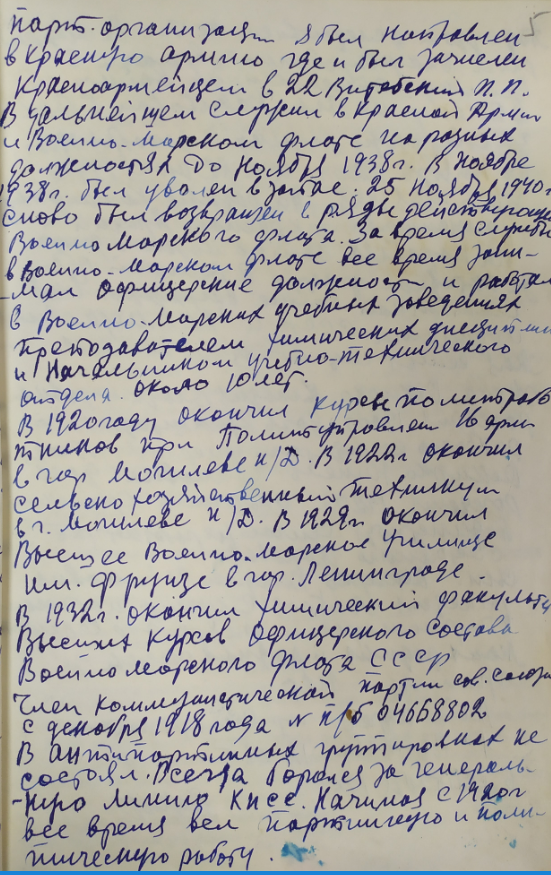 5
парт. организации я был направлен
в красную армию где и был зачислен
красноармейцем в 22 Витебский п.п.
В дальнейшем служил в красной Армии
и Военно-Морском флоте на разных
должностях до ноября 1938 г. В ноябре
1938 г. был уволен в запас. 25 ноября 1940 г
снова был возвращен в ряды действующего
Военно Морского флота. За время службы
в Военно-Морском флоте все время зани-
-мал офицерские должности и работал
в Военно-Морских учебных заведениях
преподавателем химических дисциплин
и Начальником учебно-технического
отдела около 10 лет.
В 1920 году окончил курсы политработ
тников при Политуправлении 16 арм
в гор Могилеве н/Д. В 1922 г окончил
сельско хозяйственный техникум
в г. Могилеве н/Д. В 1929 г. окончил
Высшее Военно-Морское Училище
им. Фрунзе в гор. Ленинграде.
В 1932 г. окончил химический факультет
Высших курсов офицерского состава
Военно морского флота СССР
Член коммунистической партии сов. союза
с декабря 1918 года № п/б 04668802
В антипартийных группировках не
состоял. Всегда боролся за генераль-
-ную линию КПСС. Начиная с 1920 г
все время вел партийную и поли-
тическую работу.